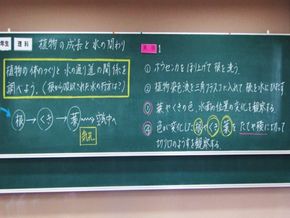 年生 理科 植物の成長と水の関わり
植物の体のつくりと水の通り道の関係を
調べよう。(根から吸収された水の行方は?)
根→くき→葉→空中へ
気孔
実験1
① ホウセンカをほり上げて根を洗う
② 植物染色液を三角フラスコに入れて根を水にひたす
③ 葉やくきの色、水面の位置の変化を観察する
④ 色が変化した根やくき、葉をたてや横に切って
切り口のようすを観察する。